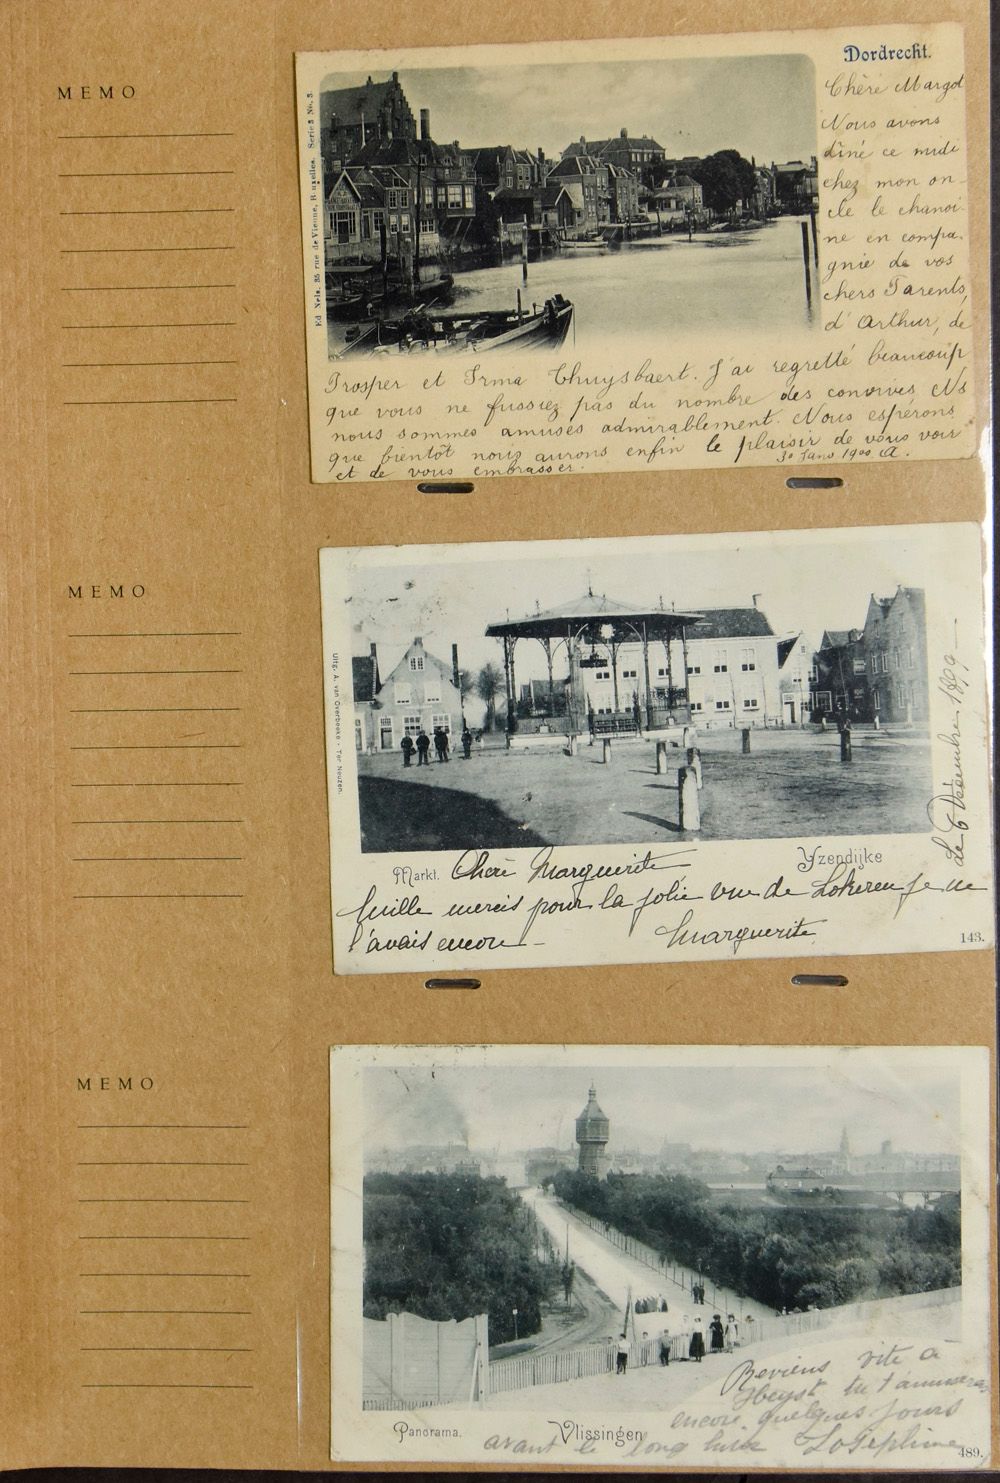 MEMO
Dordrecht.
Ed Nels, 35 rue de Vienne, Bruxelles. Serie 3 No. 3.
Chère Margot
Nous avons
dîné ce midi
chez mon on-
cle le chanoi-
ne en compa-
gnie de vos
chers Parents,
d'Arthur, de
Prosper et Irma Thuysbaert. J'ai regretté beaucoup
que vous ne fussiez pas du nombre des convives. Ns
nous sommes amusés admirablement. Nous espérons
que bientôt nous aurons enfin le plaisir de vous voir
et de vous embrasser.
30 Janv 1900 A.
MEMO
Uitg. A. van Overbeeke - Ter Neuzen.
Le 6 Décembre 1899 —
Markt.
Yzendijke
Chère Marguerite
Mille mercis pour la jolie vue de Lokeren je ne
l'avais encore —
Marguerite
143.
MEMO
Reviens vite à
Heyst tu t'amuseras
encore quelques jours
avant le long hiver Joséphine
Panorama.
Vlissingen
489.